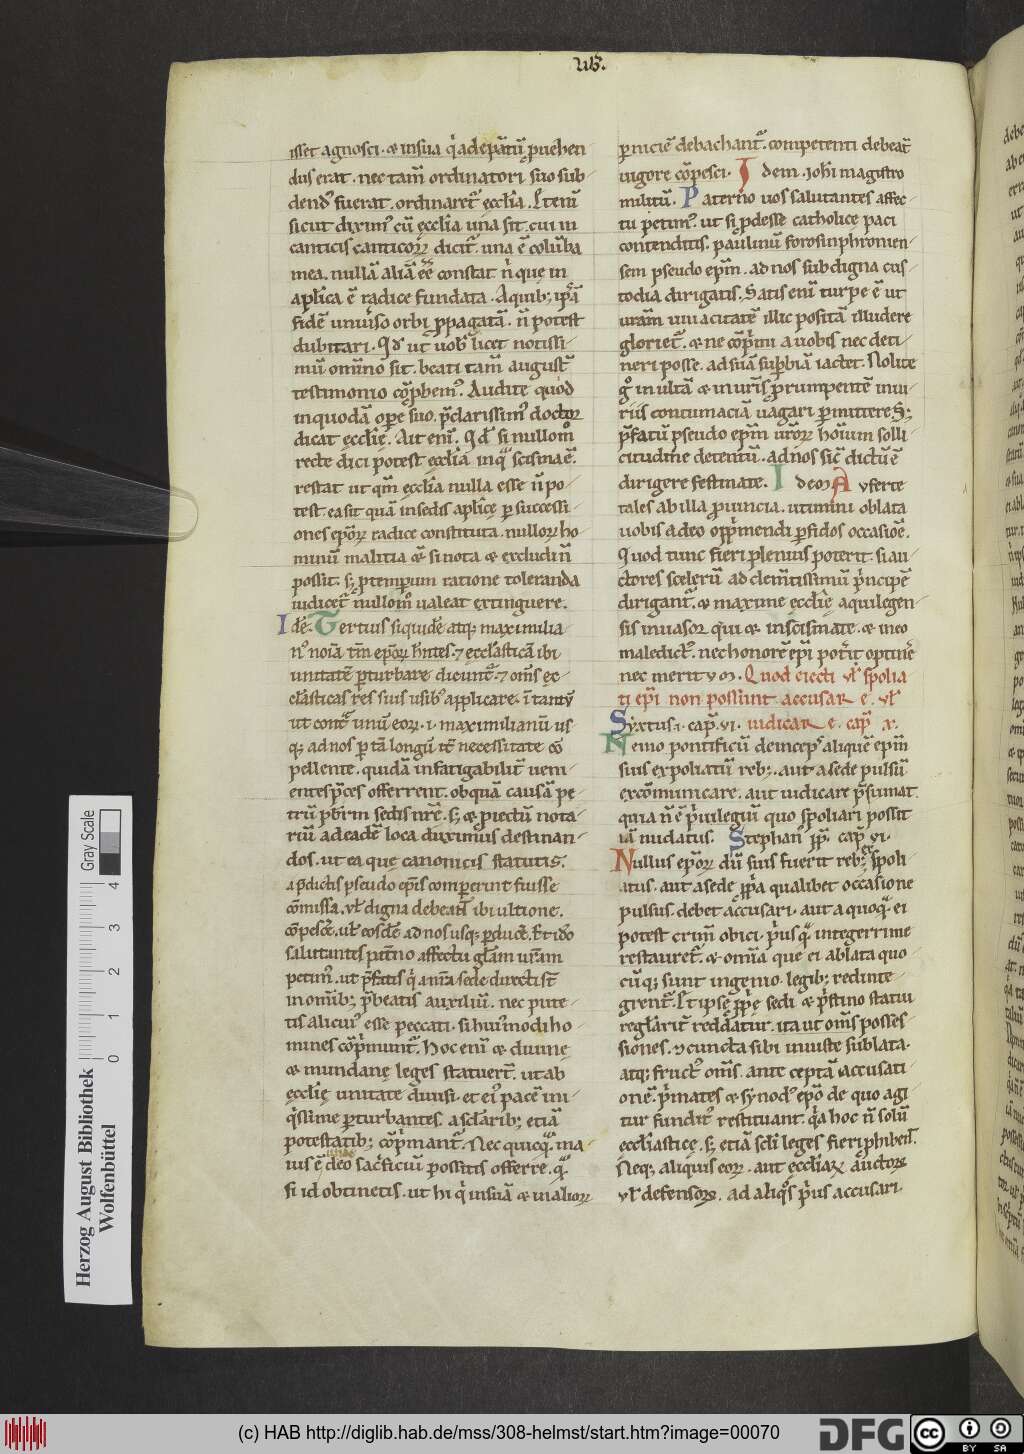 isset agnosci. & insua q̇ adeptꝰ p̄uehen
dus erat. nec tam̄ ordinatori suo sub
dendꝰ fuerat. ordinaret᷑ ęccl̄ia. Ite
sicut diximꝰ cū ęccl̄ia una sit. cui in
canticis canticoꝝ dicit᷑. una ē colūba
mea. nullā aliā ēē constat n̄ quę in
apl̄ica ē radice fundata. A quib; ip̄ā
fidē uniu̅so orbi p̄pagatā. n̄ potest
dubitari. Qd̄ ut uob̄ licet notissi
mū om̄ino sit. beati tam̄ augustī
testimonio cōp̄bemꝰ. Audite quod
inquodā ope suo. p̄clarissimꝰ doctor
dicat ęccl̄ię. Ait eni᷑. Qd̄ si nullomō
recte dici potest ęccl̄ia inq̄ scisma ē.
restat ut qm̄ ęccl̄ia nulla esse n̄ po
test. ea sit quā insedis apl̄icę p successi
ones epōꝝ radice constituta. nulloꝝ ho
minū malitia &̄ si nota & excludi n̄
possit. s; p tempoꝝum ratione toleranda
iudicet᷑ nullomō ualeat extinguere.
Idē. Tertius siquidē atq; maximilia
nꝰ noīa tm̄ epōꝝ hn̄tes. ⁊ ęccl̄asticā ibi
unitatē pturbare dicunt᷑. ⁊ om̄s ęc
cl̄asticas res suis usibꝰ applicare. ī tantū
ut contᵃ unū eoꝝ. i. maximilianū us
q; ad nos p tā longū tc̄ necessitate cō
pellente. quidā infatigabilit᷑ ueni
entes p̄ces offerrent. ob quā causā pe
trū pb̄rm sedis nr̄ę. s; & p̄iectū nota
riū ad eadē loca duximus destinan
dos. ut ea que canonicis statutis.
a p̄dictis pseudo ep̄is compererint fuisse
cōmissa. ul̄ digna debeāt ibi ultione.
cōpesce̅. ul̄ eosdē ad nos usq; pduce̅. Et idō
salutantis pat̄no affectu gl̄am uram
petimꝰ. ut p̄fatis q̇ a nr̄a sede directi st̄
in omīb; p̄beatis auxiliū. nec pute
tis alicuiꝰ esse peccati. si huiꝰmodi ho
mines cōp̄munt᷑. Hoc eni᷑ & diuinę
& mundanę leges statuert̄. ut ab
ęccl̄ię unitate diuisi. et eiꝰ pacē ini
q̇ssime pturbantes. a sclarib; etiā
potestatib; cōp̄mant᷑. Nec quicq̄ ma
ius ē deo sac̣ficiū possitis offerre. q̄
si id obtinetis. ut hi q̇ insuā & in alioꝝ
pniciē debachant᷑. competenti debeāt
uigore cōpesci. Idem. Joh̄i magistro
militū. Paterno uos salutantes affec
tu petimꝰ. ut si p̄desse catholicę paci
contenditis. paulinū forosinphronien
sem pseudo epm̄. ad nos sub digna cus
todia dirigatis. Satis eni᷑ turpe ē ut
uram uiuacitatē illic positā illudere
gloriet᷑. & ne cōp̄mi a uobis nec deti
neri posse. ad suā supbiā iactet. Nolite
g̊ inultā & in uris p̄rumpentē iniu
riis contumaciā uagari pmittere. S;
p̄fatū pseudo epm̄ uroꝝ hoīum solli
citudine detentū. ad nos sic̄ dictū ē
dirigere festinate. Idem Auferte
tales ab illa puincia. ut immi oblata
uobis a deo opp̄mendi pfidos occasioē.
Quod tunc fieri plenius poterit. si au
ctores scelerū ad clem̄tissimū p̄ncipē
dirigant᷑. & maxime ęccl̄ię aquilegen
sis inuasor qui & inscismate. & in eo
maledictꝰ. nec honorē epi poterit optine̅
nec meritum. Quod eiecti ul̄ spolia
ti epi non possunt accusare. ul̄
Syxtus. i. cap̄. vi. iudicare. cap̄. x.
Nemo pontificū deinceps aliquē epm̄
suis expoliatū reb;. aut a sede pulsū
excōmunicare. aut iudicare p̄sumat.
quia n̄ ē p̄uilegiū quo spoliari possit
iā nudatus. Stephan pp̄. cap̄. vi.
Nullus epōꝝ dū suis fuerit reb; exspoli
atus. aut a sede pp̄a qualibet occasione
pulsus. debet accusari. aut a quoq̄. ei
potest crim̄ obici. p̄us q̄ integerrime
restauret᷑. & om̄ia que ei ablata quo
cūq; sunt ingenio. legib; redinte
grent᷑. & ipse pp̄ę sedi & p̄stino statui
regl̄arit᷑ reddatur. ita ut om̄s posses
siones. ⁊ cuncta sibi iniuste sublata.
atq; fructꝰ om̄s. ante ceptā accusati
onē. p̄mates & synodꝰ epō de quo agi
tur funditꝰ restituant. q̇a hoc n̄ solū
ęccl̄iasticę. s; etiā scl̄i leges fieri phibent.
Neq; aliquis eoꝝ. aut ęccl̄iaꝝ auctores
ul̄ defensores. ad aliq̊s p̄us accusari.
Herzog August Bibliothek
Wolfenbüttel
Gray Scale
0 1 2 3 4
(c) HAB http://diglib.hab.de/mss/308-helmst/start.htm?image=00070
DFG
cc BY SA